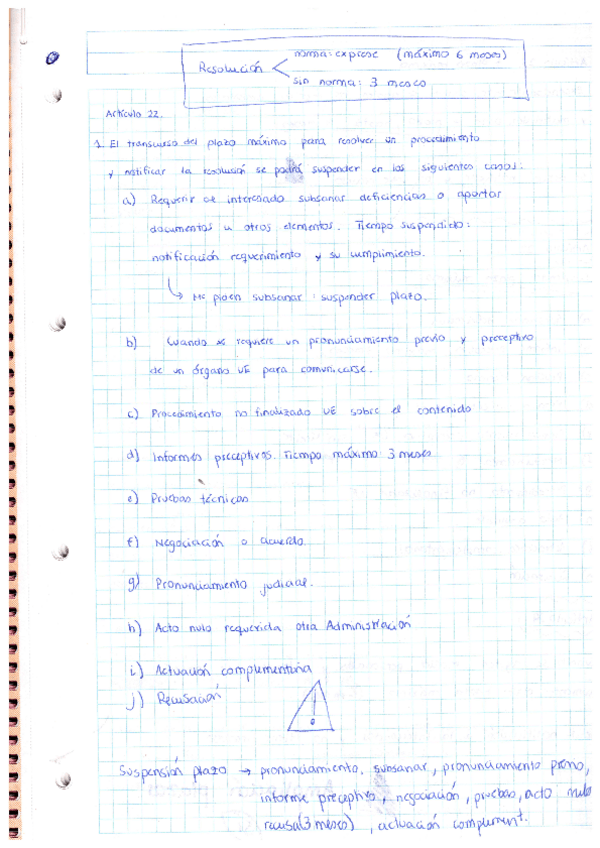 Resolución
norma: expresa (máximo 6 meses)
sin norma: 3 meses
Artículo 22.
1. El transcurso del plazo máximo para resolver un procedimiento
y notificar la resolución se podrá suspender en los siguientes casos:
a) Requerir al interesado subsanar deficiencias o aportar
documentos u otros elementos. Tiempo suspendido:
notificación requerimiento y su cumplimiento.
↳ Me piden subsanar: suspender plazo.
b) Cuando se requiere un pronunciamiento previo y preceptivo
de un órgano UE para comunicarse.
c) Procedimiento no finalizado UE sobre el contenido
d) Informes preceptivos. Tiempo máximo 3 meses
e) Pruebas técnicas
f) Negociación o acuerdo.
g) Pronunciamiento judicial.
h) Acto nulo requerida otra Administración
i) Actuación complementaria
j) Recusación
!
Suspensión plazo → pronunciamiento, subsanar, pronunciamiento previo,
informe preceptivo, negociación, pruebas, acto nulo
recusa (3 meses), actuación complement.